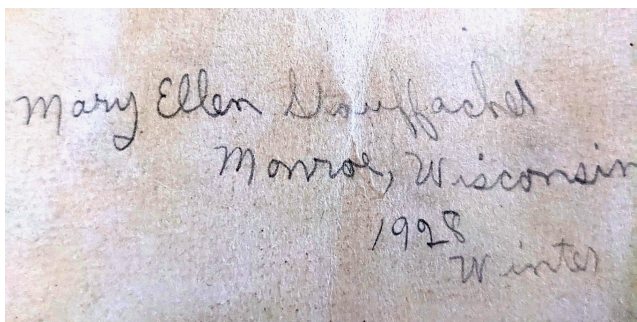 Mary Ellen Stauffacher
Monroe, Wisconsin
1928
Winter